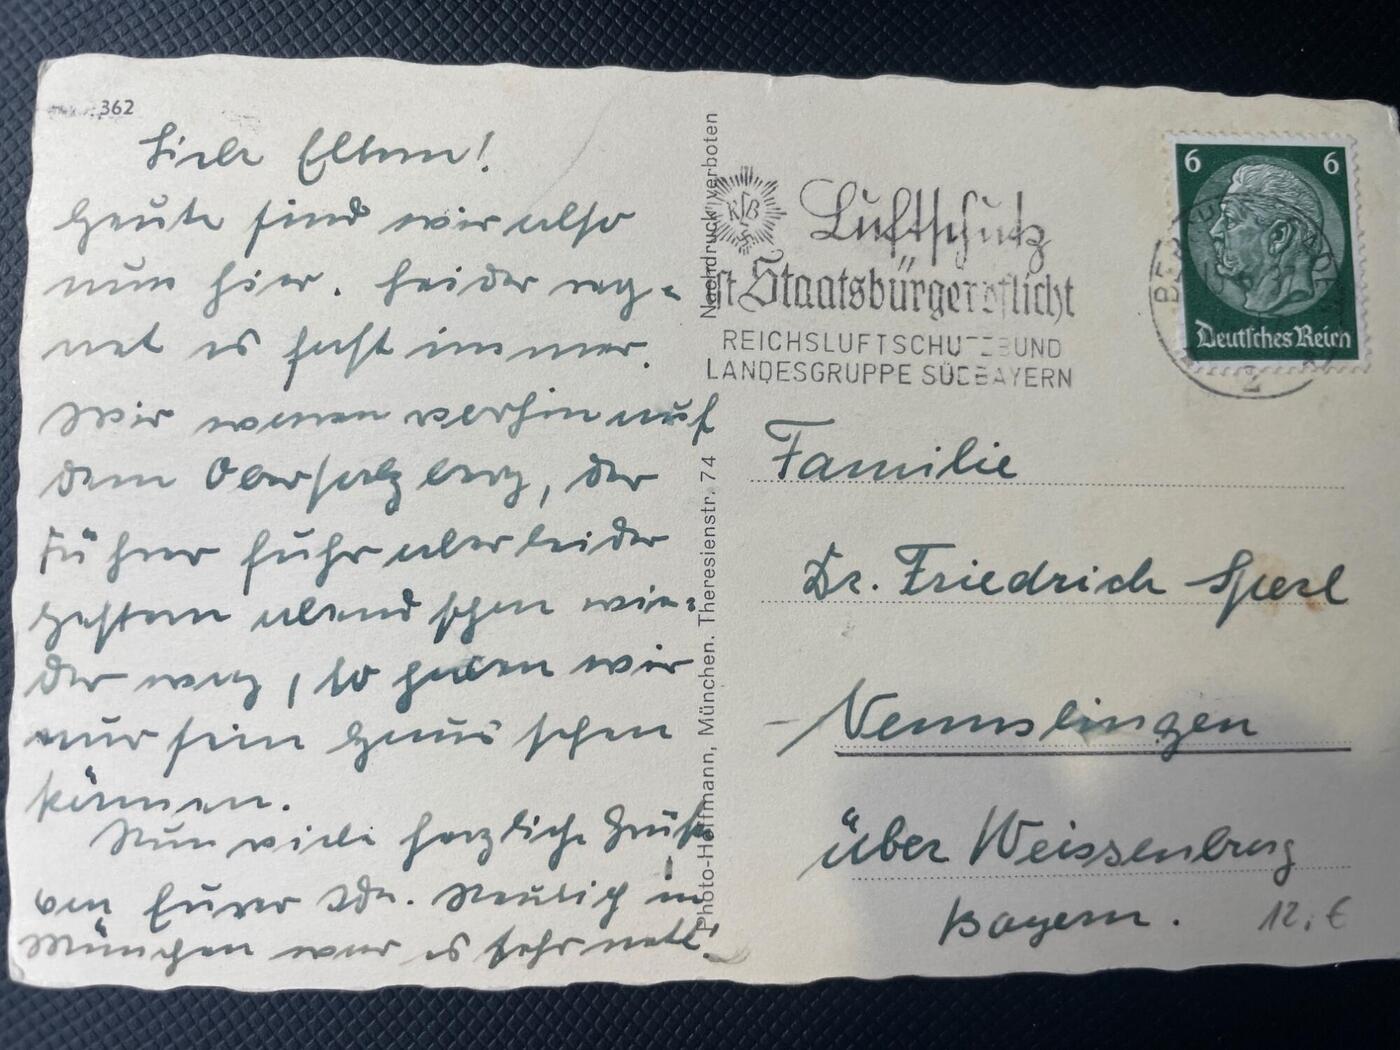 362
Liebe Eltern!
Heute sind wir also
nun hier. Leider reg-
net es fast immer.
Wir waren vorhin auf
dem Obersalzberg, der
Führer fuhr aber leider
gestern abend schon wie-
der weg, so haben wir
nur sein Haus sehen
können.
Nun viele herzliche Grüße
von Eurer Neulich in
München war es sehr nett!
Nachdruck verboten
Photo-Hoffmann, München. Theresienstr. 74
RLB
Luftschutz
ist Staatsbürgerpflicht
REICHSLUFTSCHUTZBUND
LANDESGRUPPE SÜDBAYERN
6 6
Deutsches Reich
2
Familie
Dr. Friedrich Sperl
Nennslingen
über Weissenburg
Bayern.
12,€